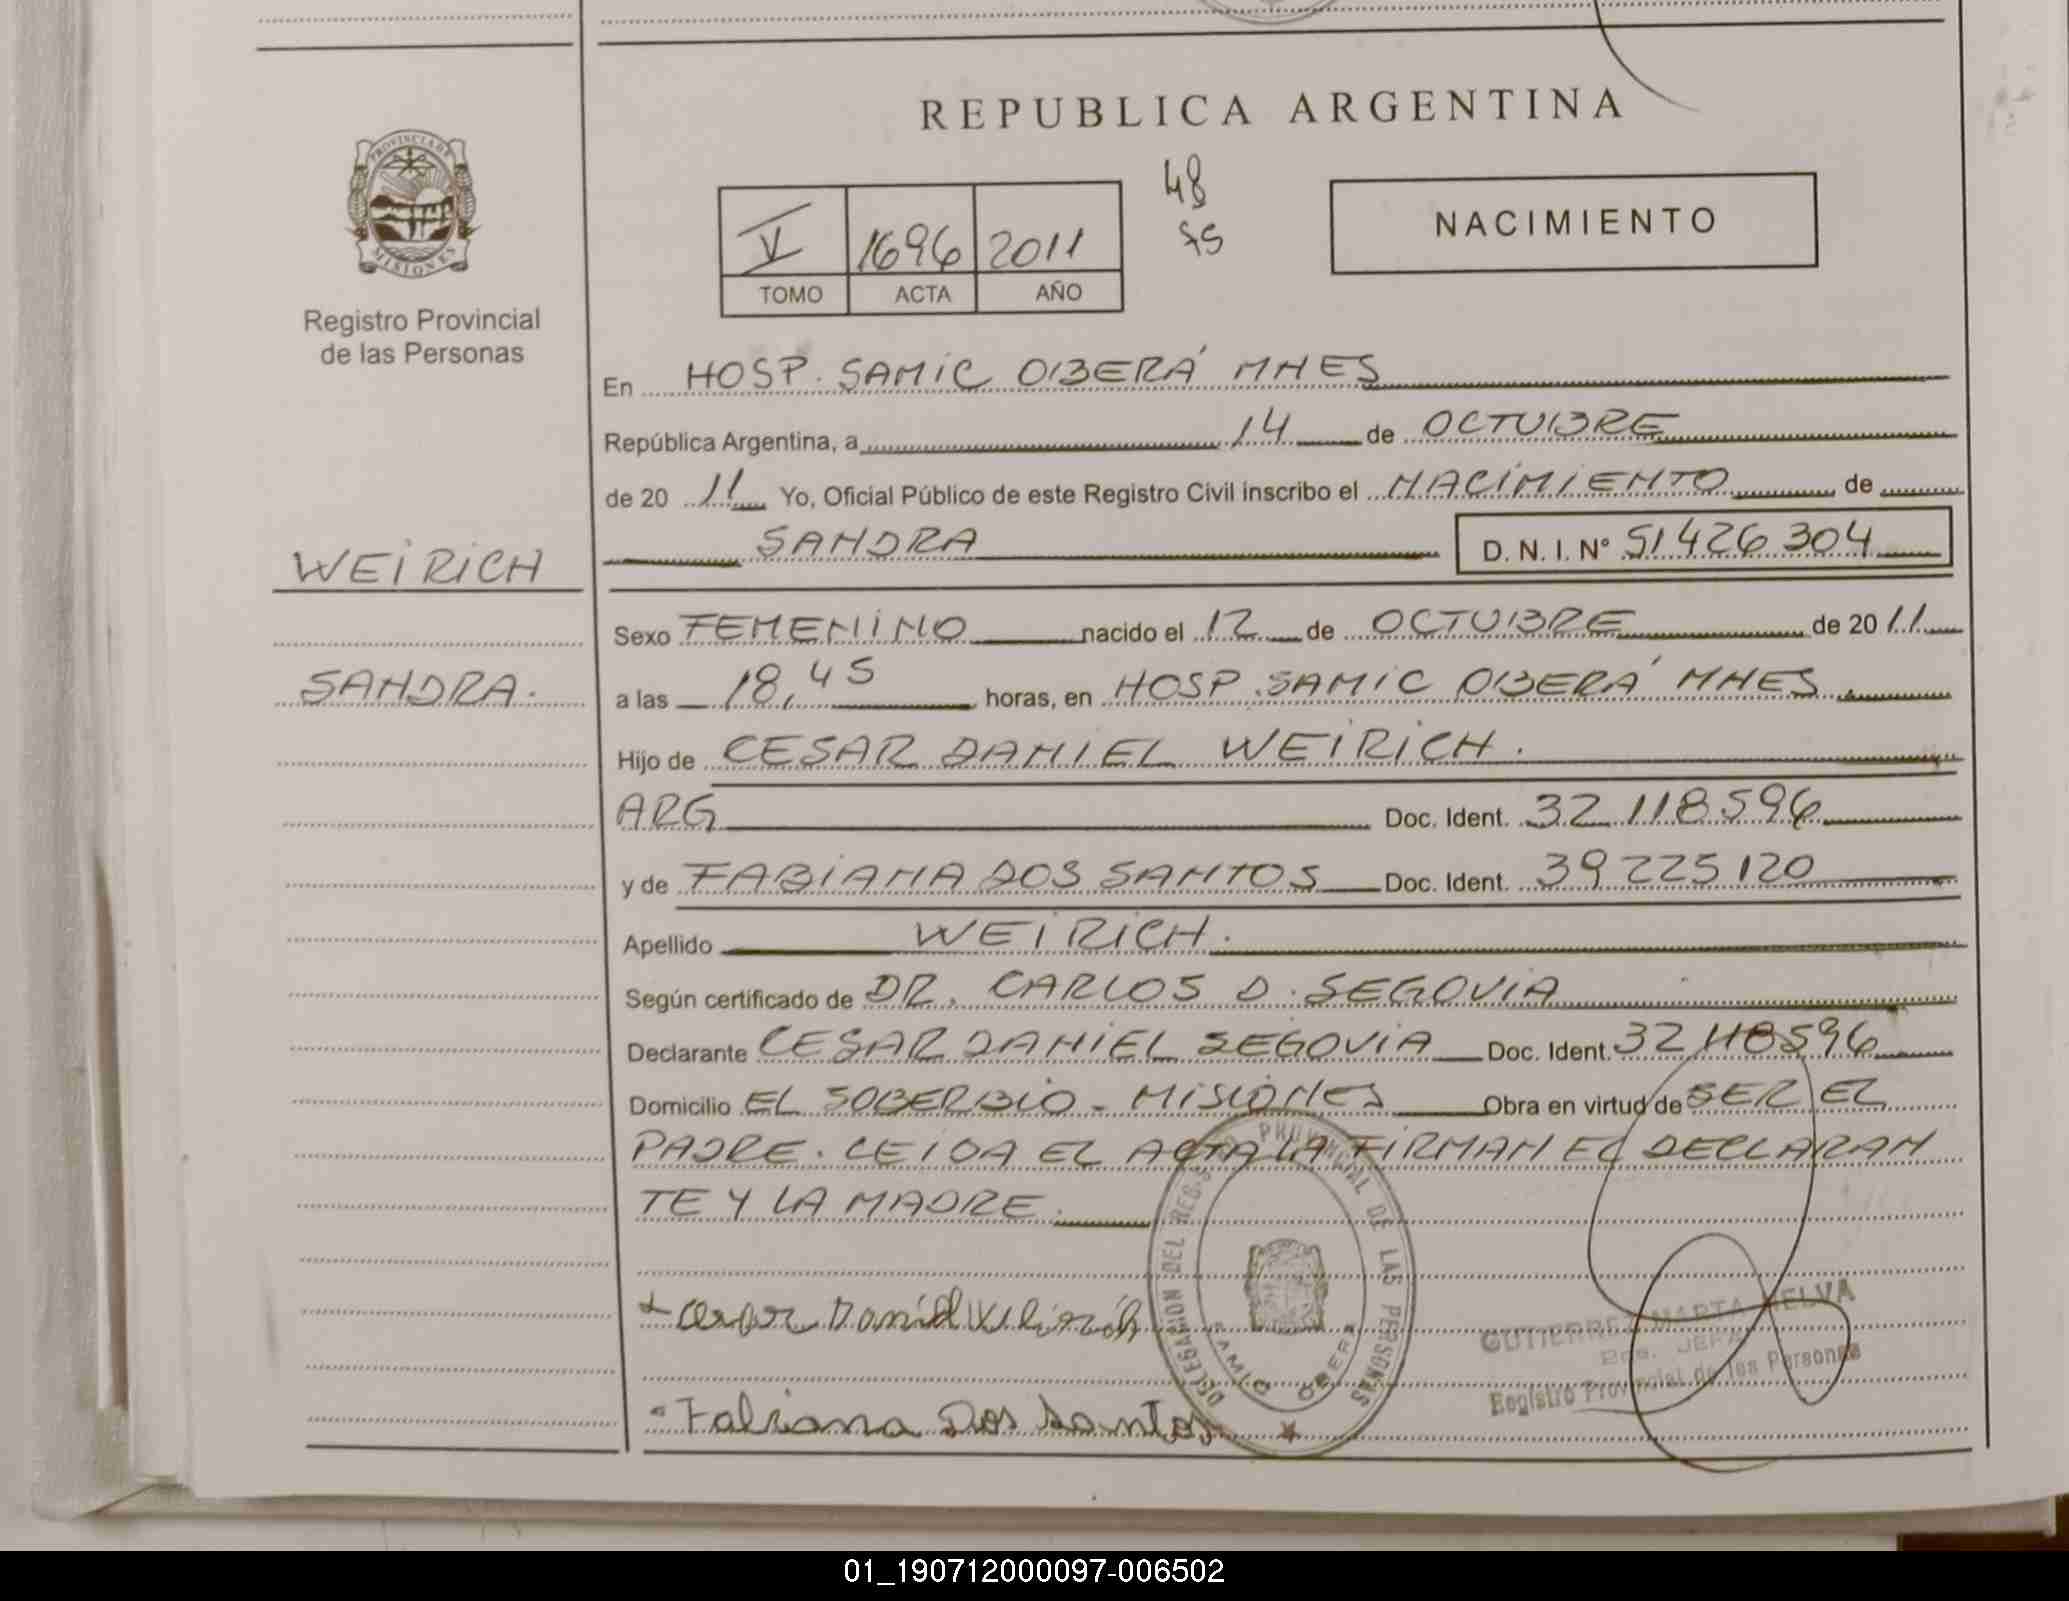 REPUBLICA ARGENTINA
PROVINCIA DE MISIONES
Registro Provincial
de las Personas
48
75
V 1696 2011
TOMO ACTA AÑO
NACIMIENTO
En HOSP. SAMIC OBERÁ MNES
República Argentina, a 14 de OCTUBRE
de 20 11 Yo, Oficial Público de este Registro Civil inscribo el NACIMIENTO de
SANDRA D. N. I. N° 51426304
WEIRICH
SANDRA.
Sexo FEMENINO nacido el 12 de OCTUBRE de 20 11
a las 18,45 horas, en HOSP. SAMIC OBERÁ MNES
Hijo de CESAR DANIEL WEIRICH.
ARG Doc. Ident. 32118596
y de FABIANA DOS SANTOS Doc. Ident. 39225120
Apellido WEIRICH.
Según certificado de DR. CARLOS D. SEGOVIA
Declarante CESAR DANIEL SEGOVIA Doc. Ident. 32118596
Domicilio EL SOBERBIO - MISIONES Obra en virtud de SER EL
PADRE. LEIDA EL ACTA LA FIRMAN EL DECLARAN
TE Y LA MADRE.
Cesar Daniel Weirich
Fabiana Dos Santos
DELEGACION DEL REGISTRO PROVINCIAL DE LAS PERSONAS
SAMIC OBERA
GUTIERREZ MARTA NELVA
Registro Provincial de las Personas
01_190712000097-006502